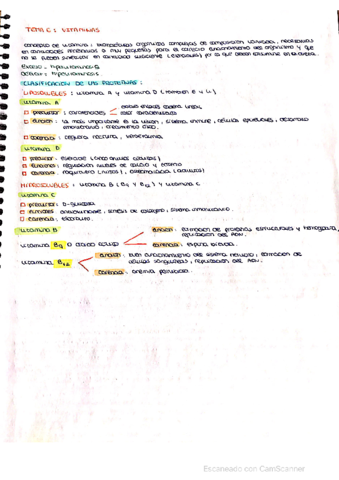 TEMA 6: VITAMINAS
concepto de vitamina: sustancias orgánicas complejas de composición variada, necesarias
en cantidades pequeñas para el correcto funcionamiento del organismo y que
no se pueden sintetizar en cantidad suficiente (esenciales) por lo que deben
Exceso: hipervitaminosis
Déficit: hipovitaminosis
CLASIFICACIÓN DE LAS PROTEÍNAS:
LIPOSOLUBLES: vitamina A y vitamina D (también E y K)
vitamina A
precursor: carotenoides
función: la más importante es la visión, sistema inmune, células epiteliales, desarrollo
embrionario, crecimiento óseo.
carencia: ceguera nocturna, xeroftalmia
vitamina D
precursor: esteroide
funciones: regulación niveles de calcio y fósforo
carencia: raquitismo (niños), osteomalacia (adultos)
HIDROSOLUBLES: vitamina B (B9 y B12) y vitamina C
vitamina C
precursor: D-glucosa
funciones: antioxidante, síntesis de colágeno, sistema inmunitario.
carencia: escorbuto.
vitamina B
vitamina B9 o ácido fólico
función: formación de proteínas estructurales y hemoglobina,
replicación del ADN.
carencia: espina bífida.
vitamina B12
función: buen funcionamiento del sistema nervioso, formación de
células sanguíneas, replicación del ADN.
carencia: anemia perniciosa.
Escaneado con CamScanner